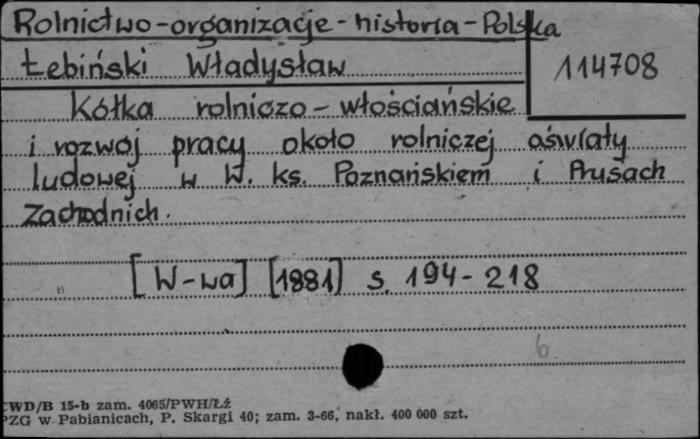 Rolnictwo-organizacje-historia-Polska
Łebiński Władysław
114708
Kółka rolniczo-włościańskie
i rozwój pracy około rolniczej oświaty
ludowej w W. ks. Poznańskiem i Prusach
Zachodnich.
[W-wa] [1881] s. 194-218
6
CWD/B 15-b zam. 4065/PWH/Łź
PZG w Pabianicach, P. Skargi 40; zam. 3-66, nakł. 400 000 szt.